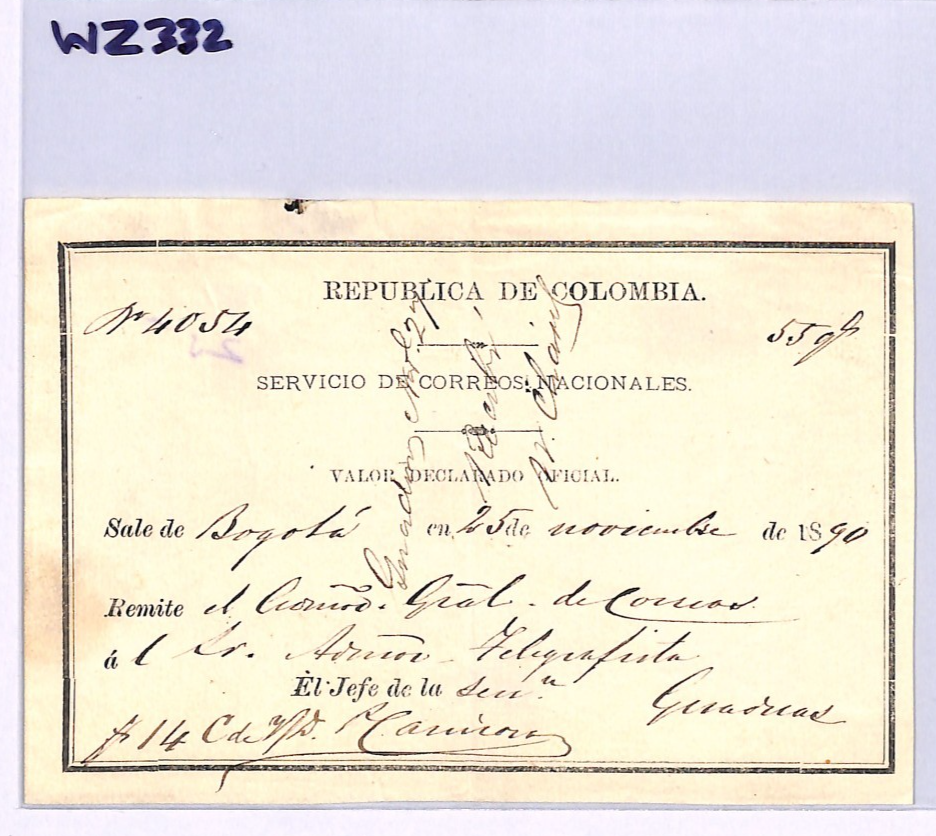 WZ332
REPUBLICA DE COLOMBIA.
Nº 4054
55 gs
SERVICIO DE CORREOS NACIONALES.
VALOR DECLARADO OFICIAL.
Sale de Bogotá en 25 de noviembre de 1890
Remite el Gral. de Correos
á l Sr. Admor Telegrafista
El Jefe de la Secn.
Guaduas
$ 14
Guaduas Nov. 27
Recibí